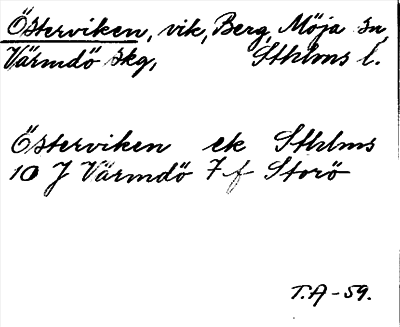 Österviken, vik, Berg, Möja sn,
Värmdö skg, Sthlms l.
Österviken ek Sthlms
10 J Värmdö 7 f Storö
T.A-59.